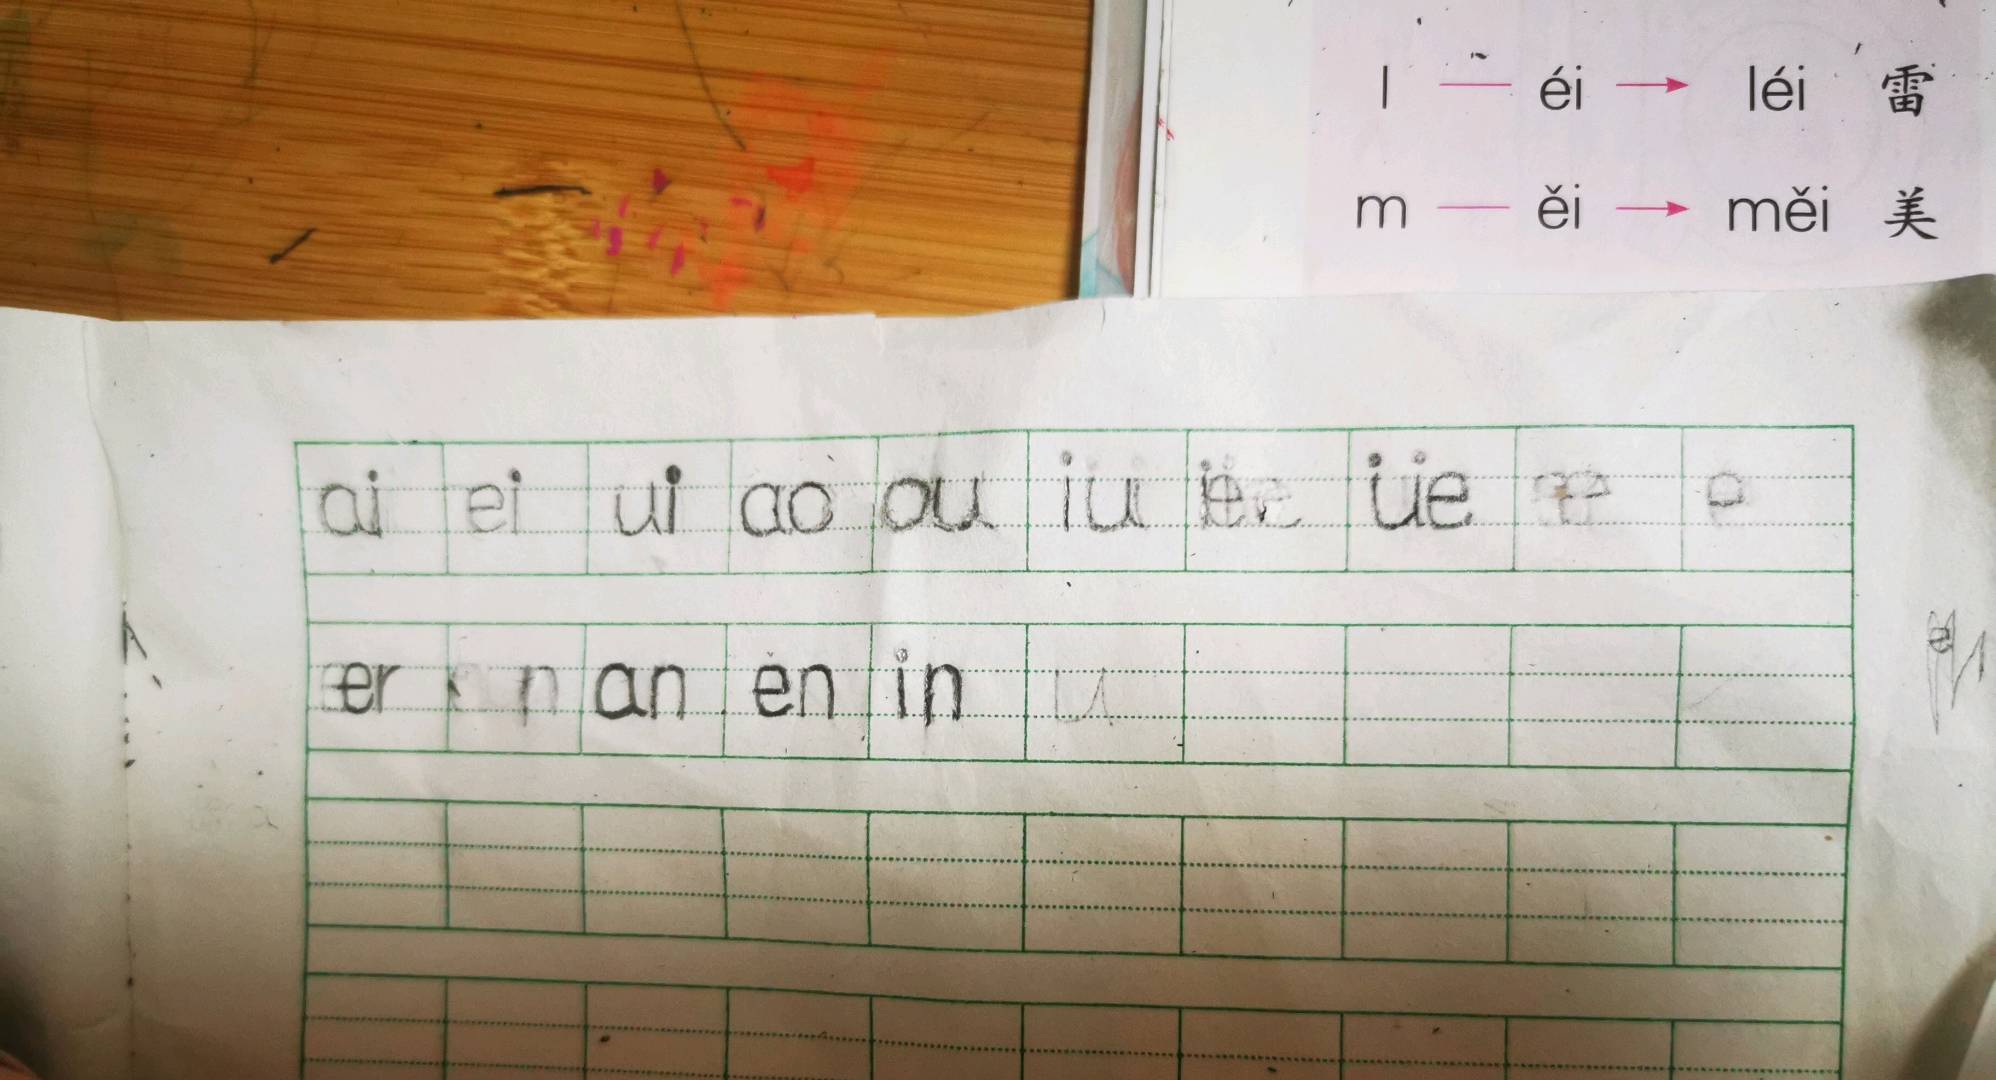 l — éi → léi 雷
m — ěi → měi 美
ai ei ui ao ou iu ie üe e
er n an en in u